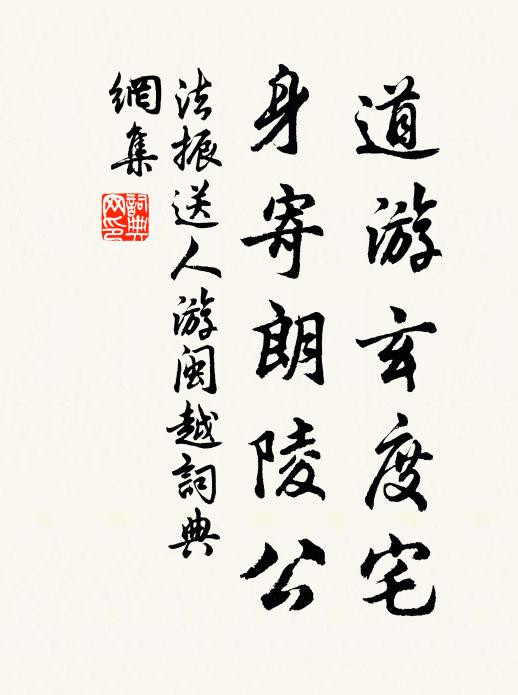 道游玄度宅
身寄朗陵公
法振送人游闽越詞典
網集
詞典
网印